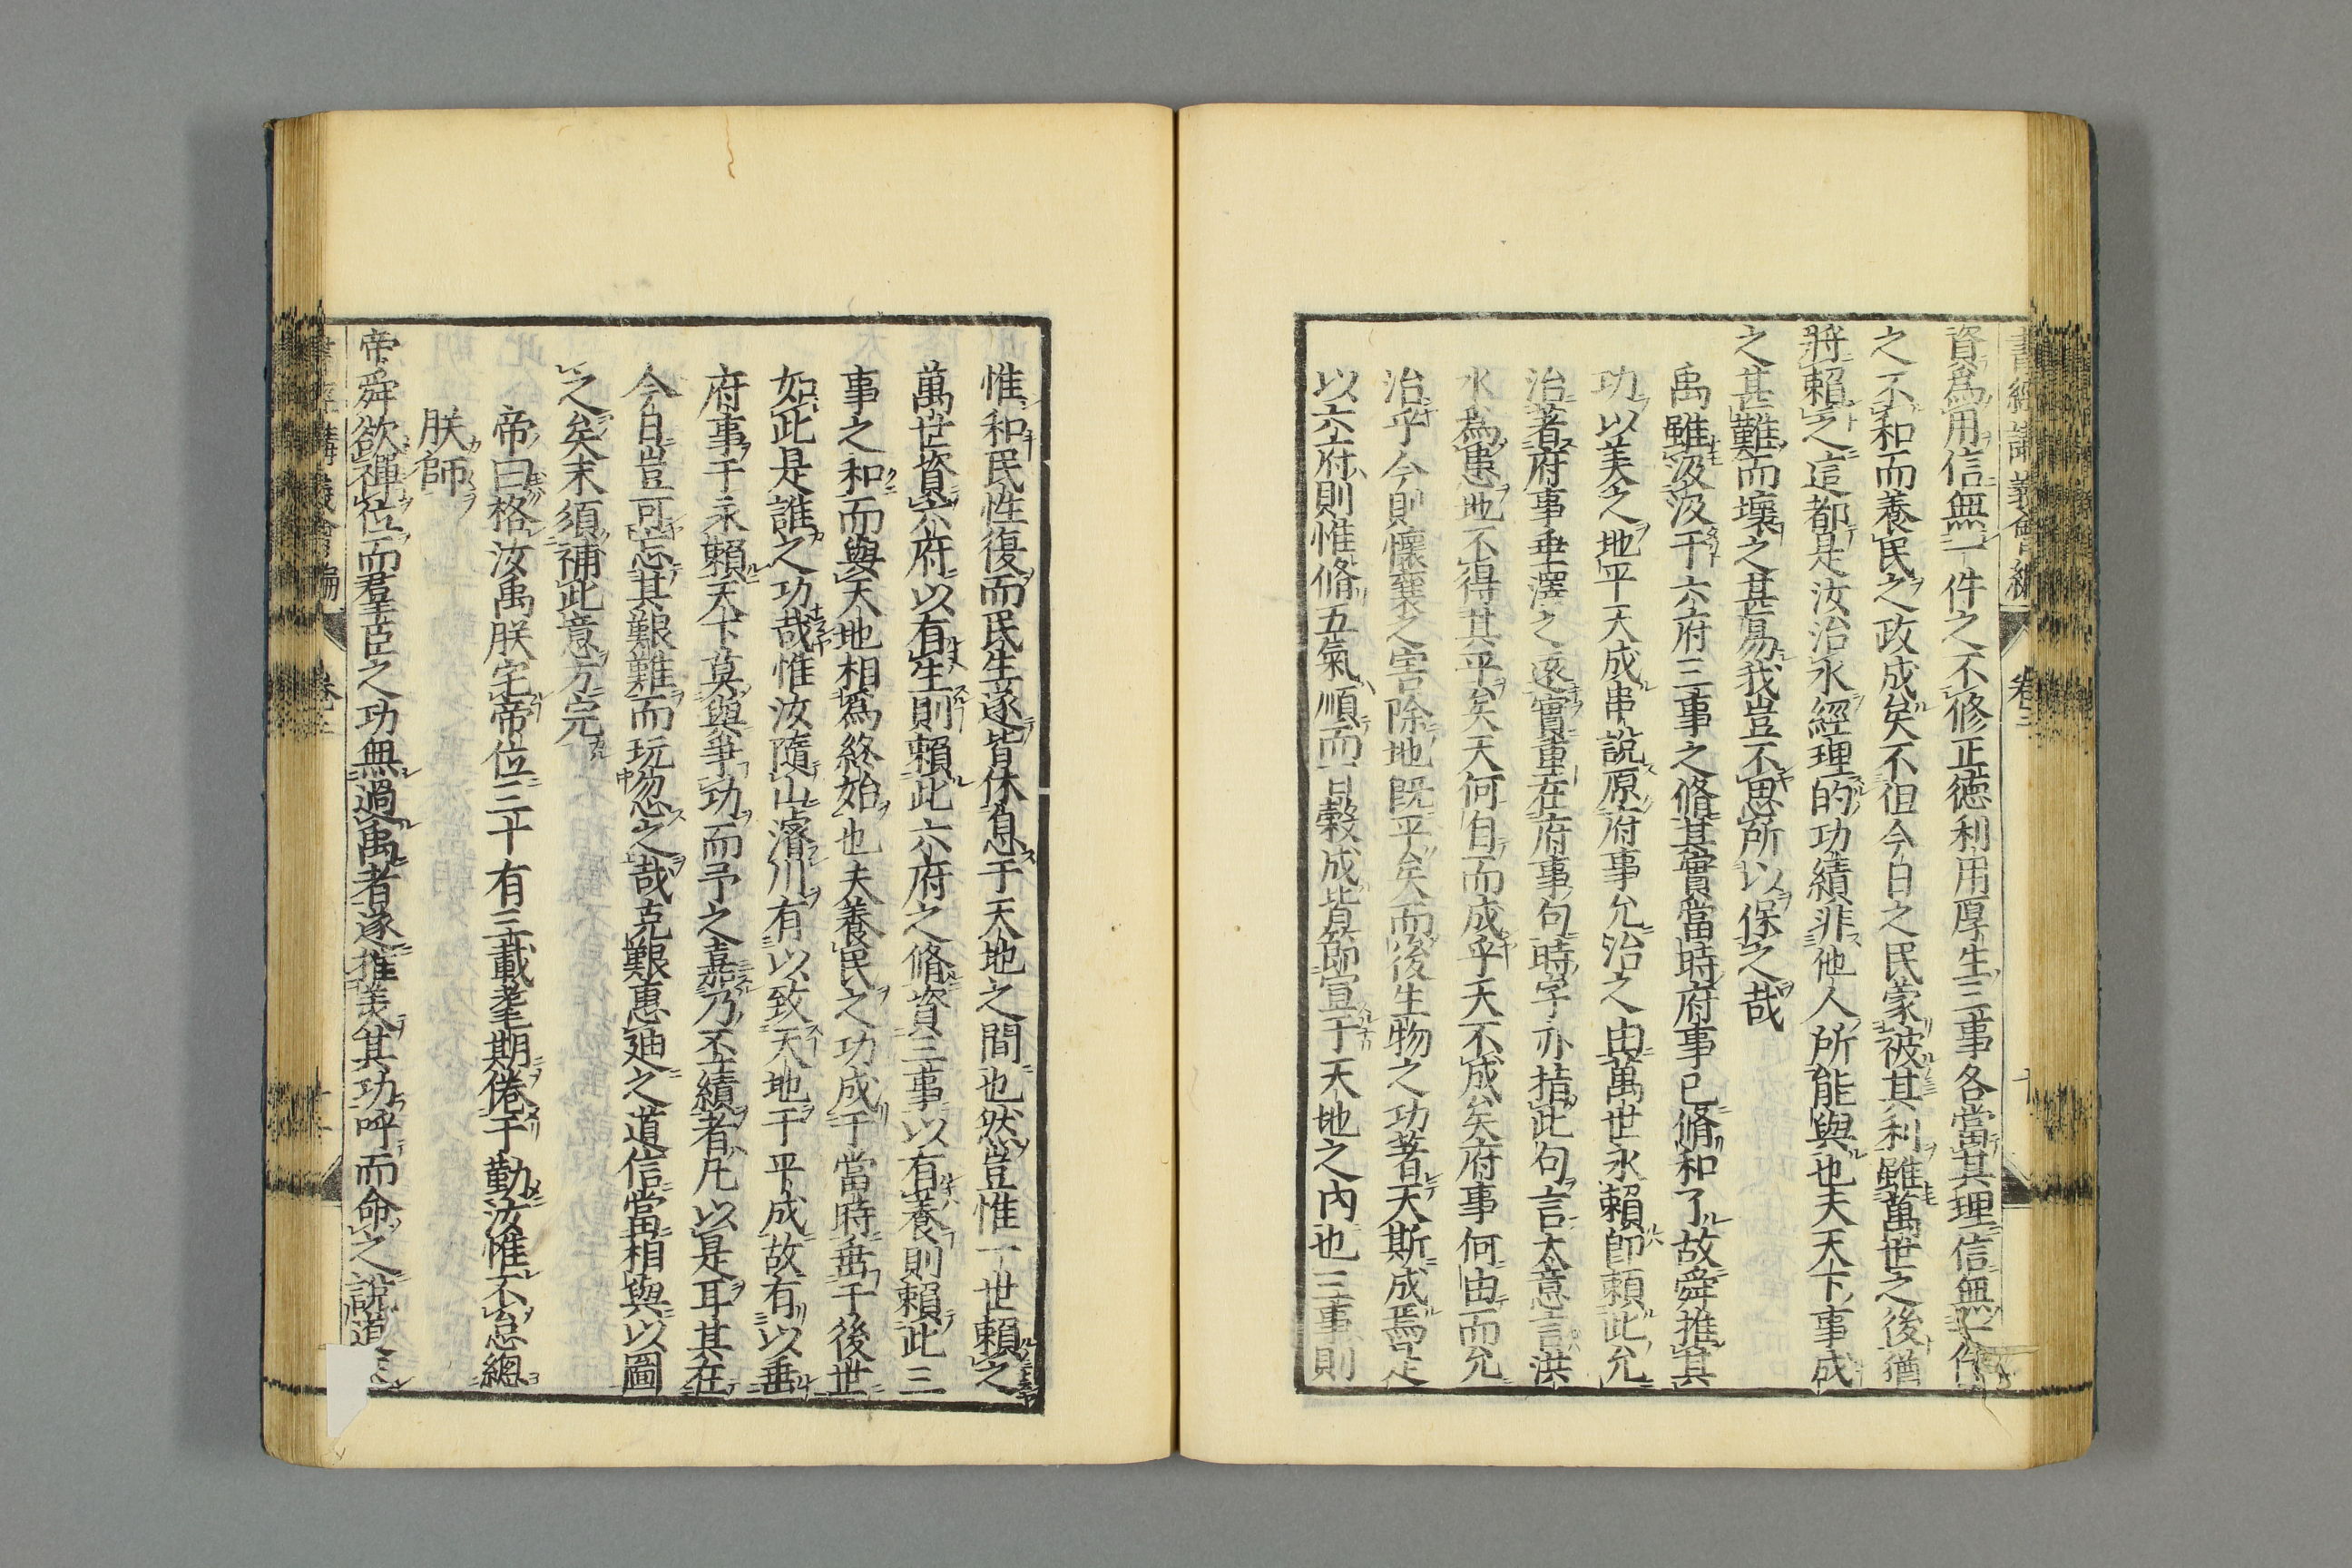 書經講義會編 卷二
資爲用信無一件之不修正德利用厚生三事各當其理信無一件
之不和而養民之政成矣不但今日之民蒙被其利雖萬世之後猶
將賴之這都是汝治水經理的功績非他人所能與也夫天下事成
之甚難而壞之甚易我豈不思所以保之哉
禹雖汲汲于六府三事之脩其實當時府事已脩和了故舜推其
功以美之地平天成串說原府事允治之由萬世永賴卽賴此允
治著府事垂澤之遠實重在府事句時字亦指此句言大意言洪
水爲患地不得其平矣天何自而成乎天不成矣府事何由而允
治乎今則懷襄之害除地既平矣而後生物之功著天斯成焉是
以六府則惟脩五氣順而百穀成皆節宣于天地之內也三事則
惟和民性復而民生遂皆休息于天地之間也然豈惟一世賴之
萬世資六府以有生則賴此六府之脩資三事以有養則賴此三
事之和而與天地相爲終始也夫養民之功成于當時垂于後世
如此是誰之功哉惟汝隨山濬川有以致天地于平成故有以垂
府事于永賴天下莫與爭功而予之嘉乃丕績者凡以是耳其在
今日豈可忘其艱難而玩忽之哉克艱惠廸之道信當相與以圖
之矣末須補此意方完
帝曰格汝禹朕宅帝位三十有三載耄期倦于勤汝惟不怠總
朕師
帝舜欲禪位而羣臣之功無過禹者遂推美其功呼而命之說道
書經講義會編 卷二